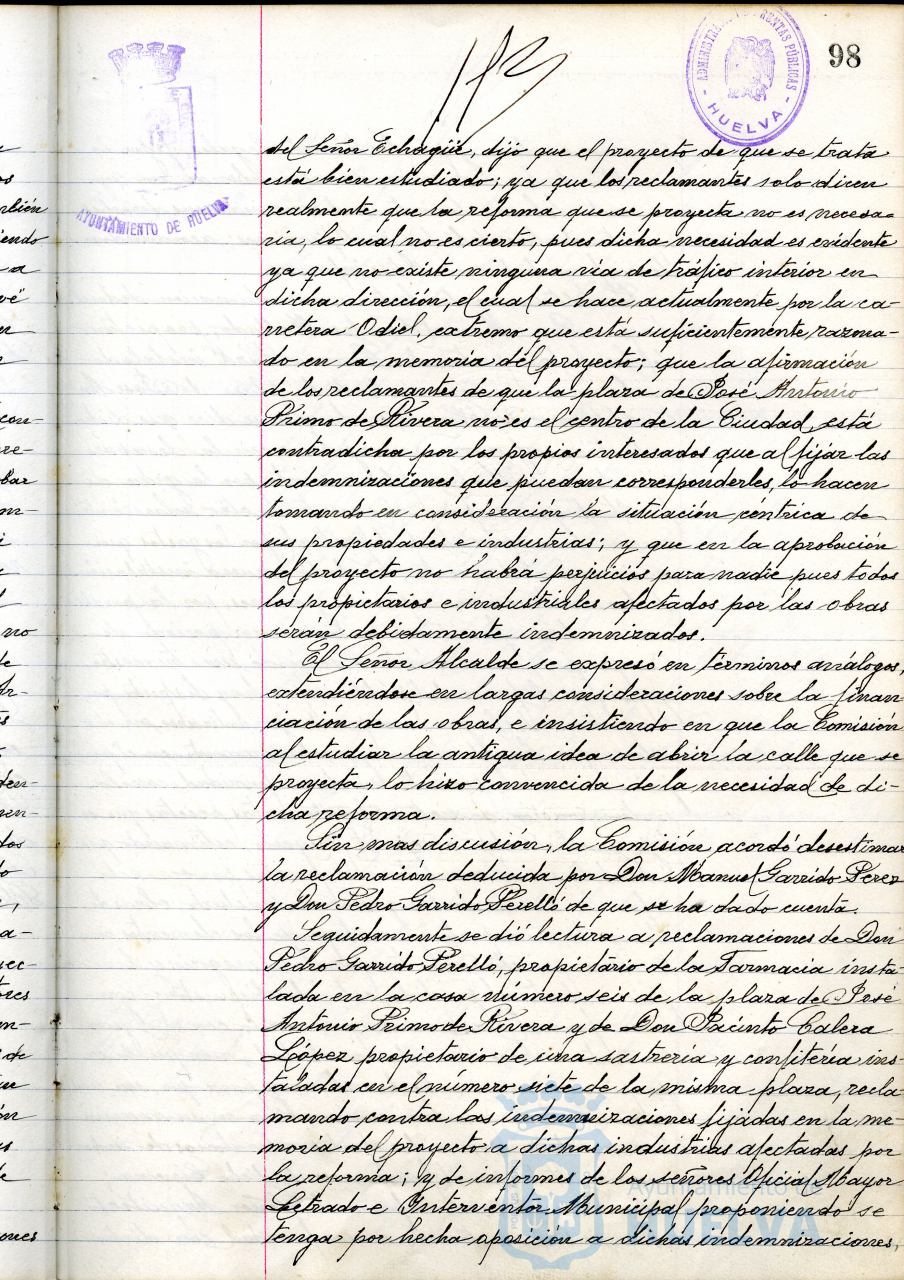 98
ADMINISTRA RENTAS PÚBLICAS
HUELVA
AYUNTAMIENTO DE HUELVA
del Señor Echagüe, dijo que el proyecto de que se trata
está bien estudiado; ya que los reclamantes solo dicen
realmente que la reforma que se proyecta no es necesa-
ria, lo cual no es cierto, pues dicha necesidad es evidente
ya que no existe ninguna via de tráfico interior en
dicha dirección, el cual se hace actualmente por la ca-
rretera Odiel, extremo que está suficientemente razona-
do en la memoria del proyecto; que la afirmación
de los reclamantes de que la plaza de José Antonio
Primo de Rivera no es el centro de la Ciudad, está
contradicha por los propios interesados que al fijar las
indemnizaciones que puedan corresponderles, lo hacen
tomando en consideración la situación céntrica de
sus propiedades e industrias; y que en la aprobación
del proyecto no habrá perjuicios para nadie pues todos
los propietarios e industriales afectados por las obras
serán debidamente indemnizados.
El Señor Alcalde se expresó en términos análogos,
extendiéndose en largas consideraciones sobre la finan
ciación de las obras, e insistiendo en que la Comisión
al estudiar la antigua idea de abrir la calle que se
proyecta, lo hizo convencida de la necesidad de di-
cha reforma.
Sin mas discusión, la Comisión acordó desestimar
la reclamación deducida por Don Manuel Garrido Perez
y Don Pedro Garrido Perelló de que se ha dado cuenta.
Seguidamente se dió lectura a reclamaciones de Don
Pedro Garrido Perelló, propietario de la Farmacia insta-
lada en la casa número seis de la plaza de José
Antonio Primo de Rivera y de Don Jacinto Calera
López propietario de una sastrería y confitería ins-
taladas en el número siete de la misma plaza, recla-
mando contra las indemnizaciones fijadas en la me-
moria del proyecto a dichas industrias afectadas por
la reforma; y de informes de los señores Oficial Mayor
Letrado e Interventor Municipal proponiendo se
tenga por hecha oposición a dichas indemnizaciones,
Ayuntamiento de
HUELVA